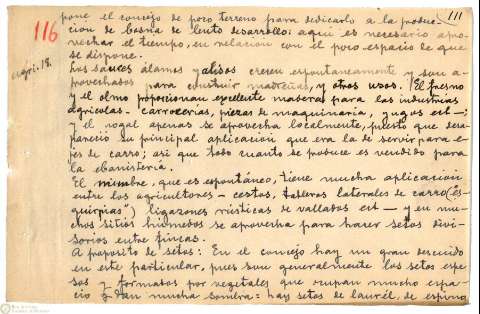 111
116
agri. 18.
pone el concejo de poco terreno para dedicarlo a la produc-
ción de bosna de lento desarrollo: aqui es necesario apro-
vechar el tiempo, en relación con el poco espacio de que
se dispone.
Los sauces álamos y alisos crecen espontaneamente y son a-
provechados para construir madreñas, y otros usos. El fresno
y el olmo proporcionan excelente maderas para las industrias
agricolas - carrocerias, piezas de maquinaria, yugos ect -;
y el nogal apenas se aprovecha localmente, puesto que desa-
pareció su principal aplicacion que era la de servir para e-
jes de carro; asi que todo cuanto se produce es vendido para
la ebanisteria.
El mimbre, que es espontáneo, tiene mucha aplicación
entre los agricultores - cestos, tableros laterales de carro ("es-
quirpias") ligazones rústicas de vallados ect - y en mu-
chos sitios húmedos se aprovecha para hacer setos divi-
sorios entre fincas.
A proposito de setos: En el concejo hay un gran descuido
en este particular, pues son generalmente los setos espe-
sos y formados por vegetales que ocupan mucho espa-
cio y dan mucha sombra: hay setos de laurel, de espino